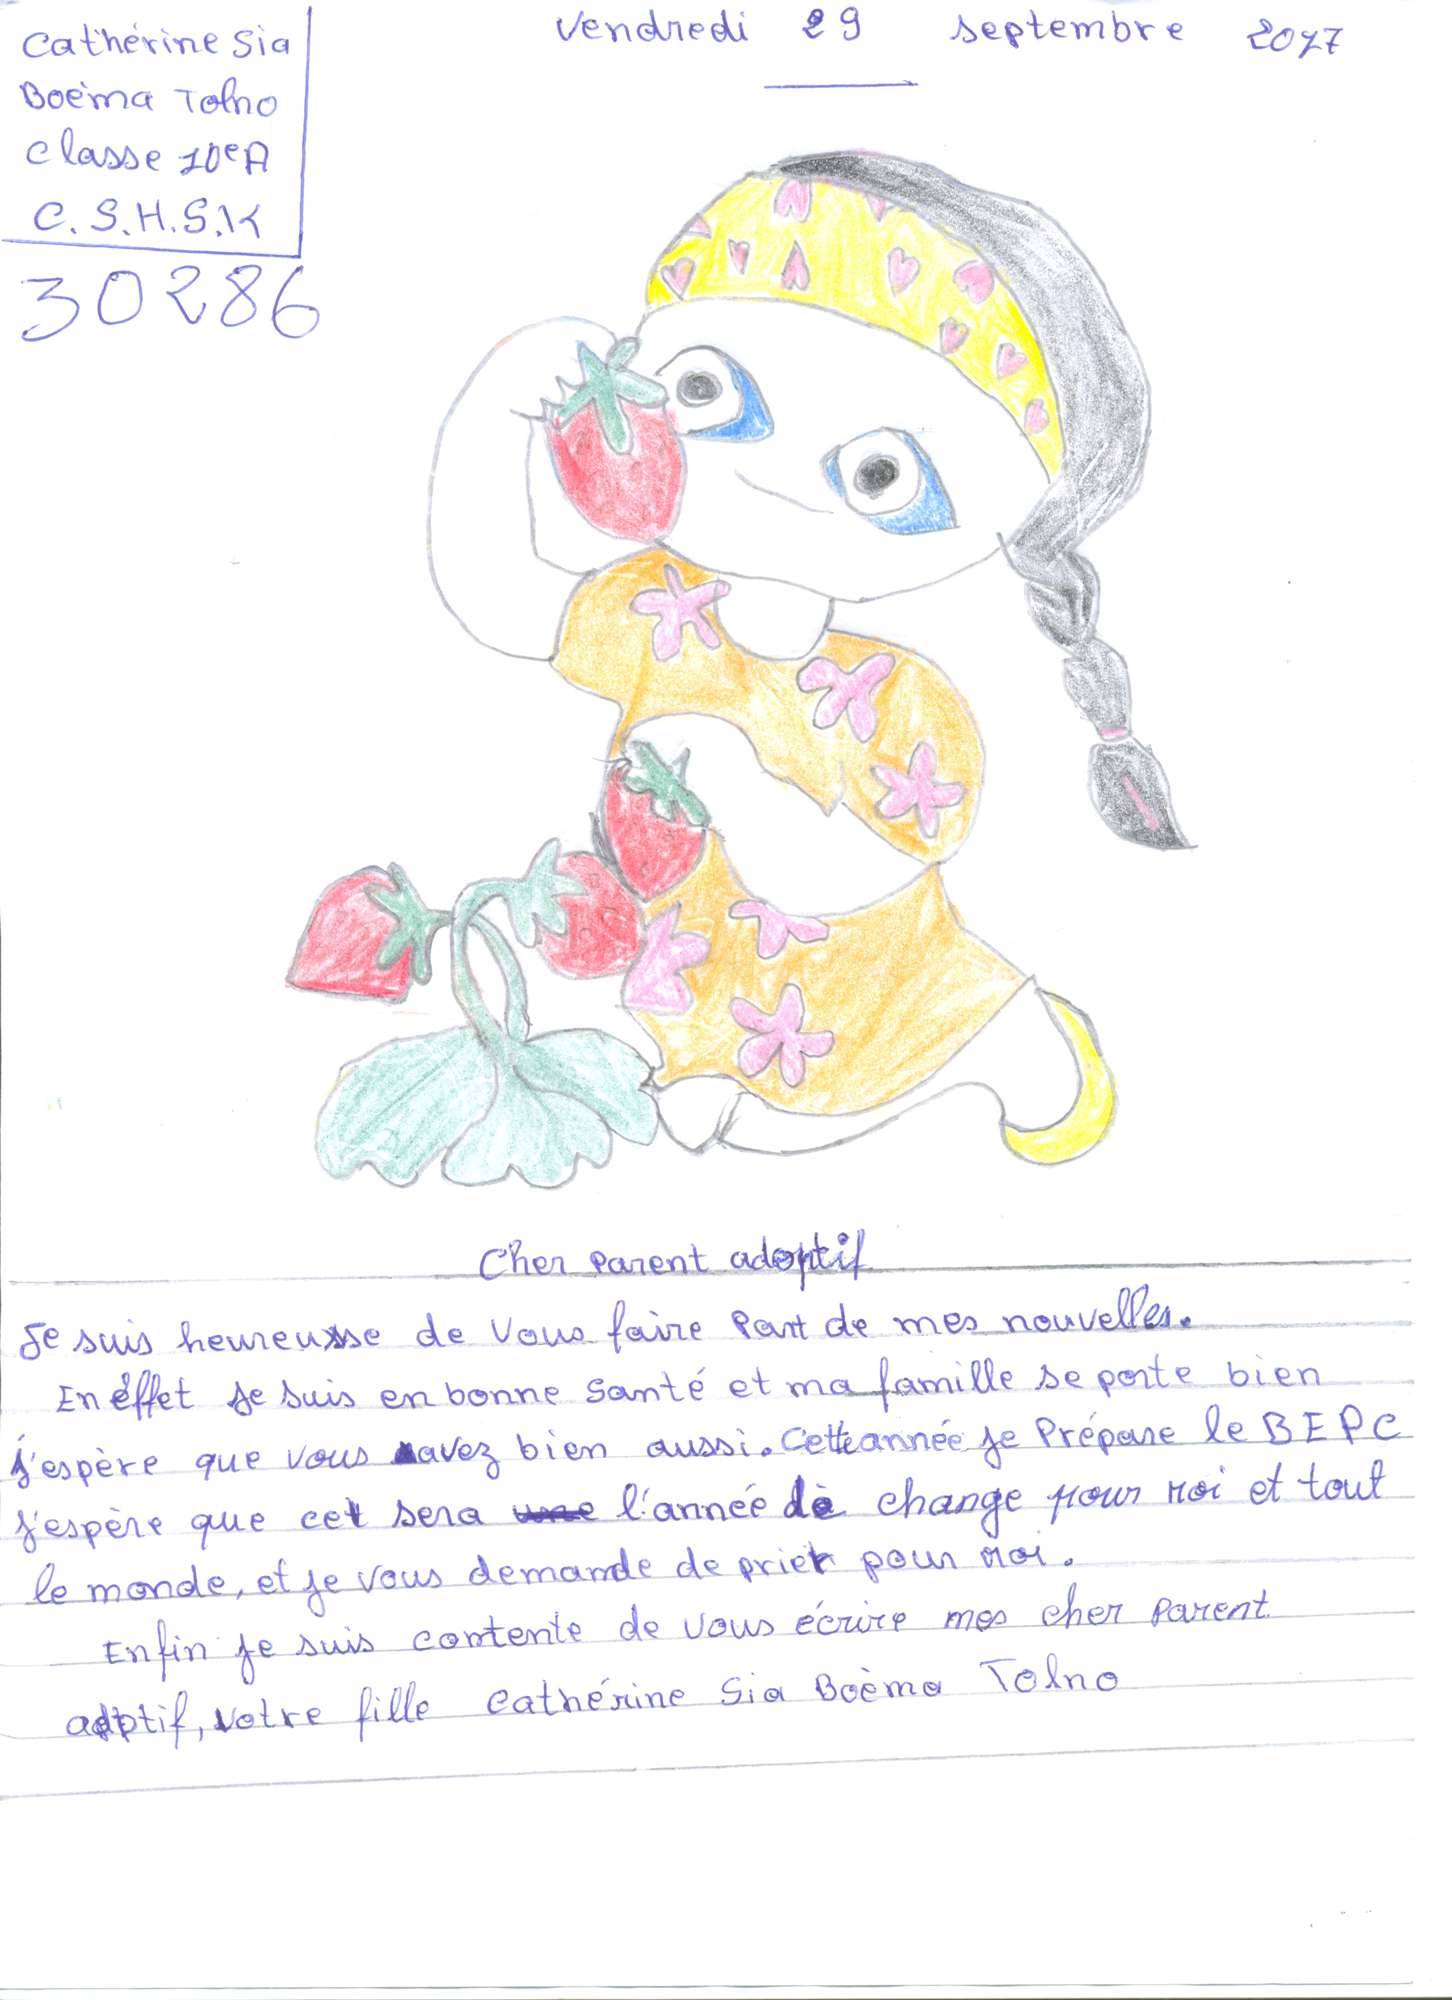 Cathérine Sia
Boèma Tolno
Classe 10eA
C.S.H.S.K
30286
Vendredi 29 septembre 2017
Cher Parent adoptif
Je suis heureuse de vous faire Part de mes nouvelles.
En éffet je suis en bonne santé et ma famille se porte bien
j'espère que vous avez bien aussi. Cette année je Prépare le BEPC
j'espère que cet sera l'année de change pour moi et tout
le monde, et je vous demande de prier pour moi.
Enfin je suis contente de vous écrire mes cher Parent
adptif, votre fille Cathérine Sia Boèma Tolno